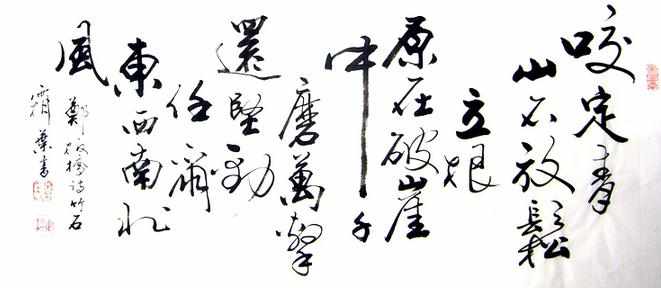 咬定青
山不放鬆
立根
原在破崖
中千
磨萬擊
還堅勁
任爾
東西南北
風
鄭板橋詩竹石
葉書